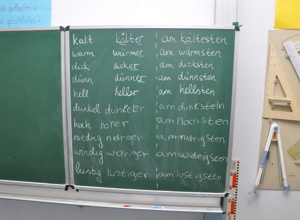 kalt kälter am kältesten
warm wärmer am wärmsten
dick dicker am dicksten
dünn dünner am dünnsten
hell heller am hellsten
dunkel dunkler am dunkelsten
hoch höher am höchsten
niedrig niedriger am niedrigsten
windig windiger am windigsten
lustig lustiger am lustigsten